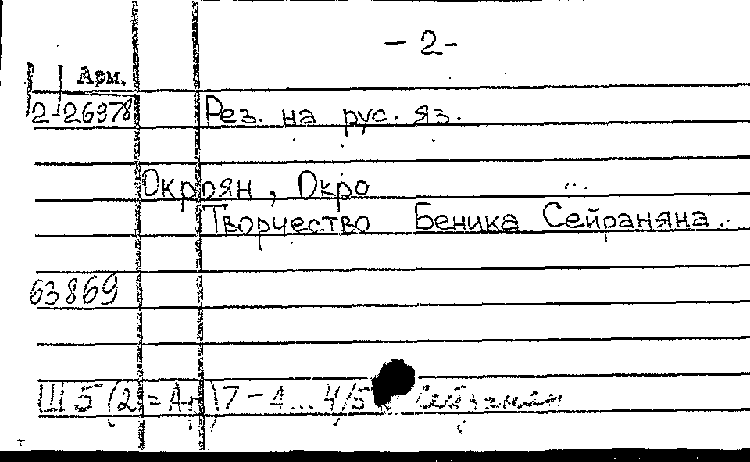 - 2 -
Арм.
2-26378 Рез. на рус. яз.
Окроян, Окро
Творчество Беника Сейраняна.
63869
Ш5(2=Ар)7-4...4/5 Сейранян